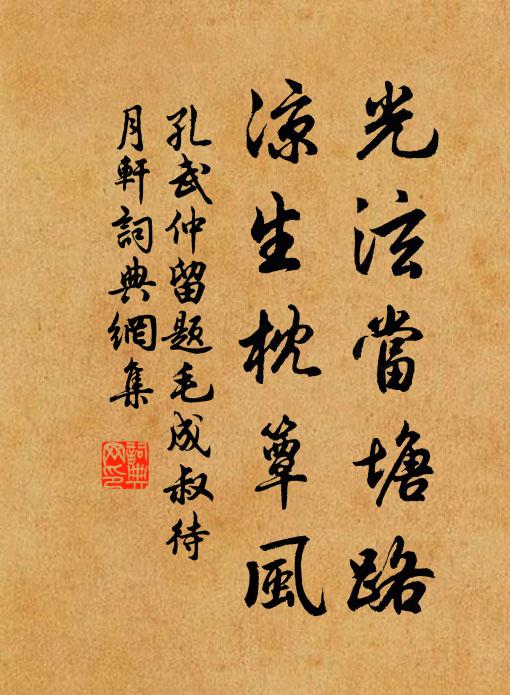 光泫當塘路
涼生枕簟風
孔武仲留題毛成叔待
月軒詞典網集
詞典網印